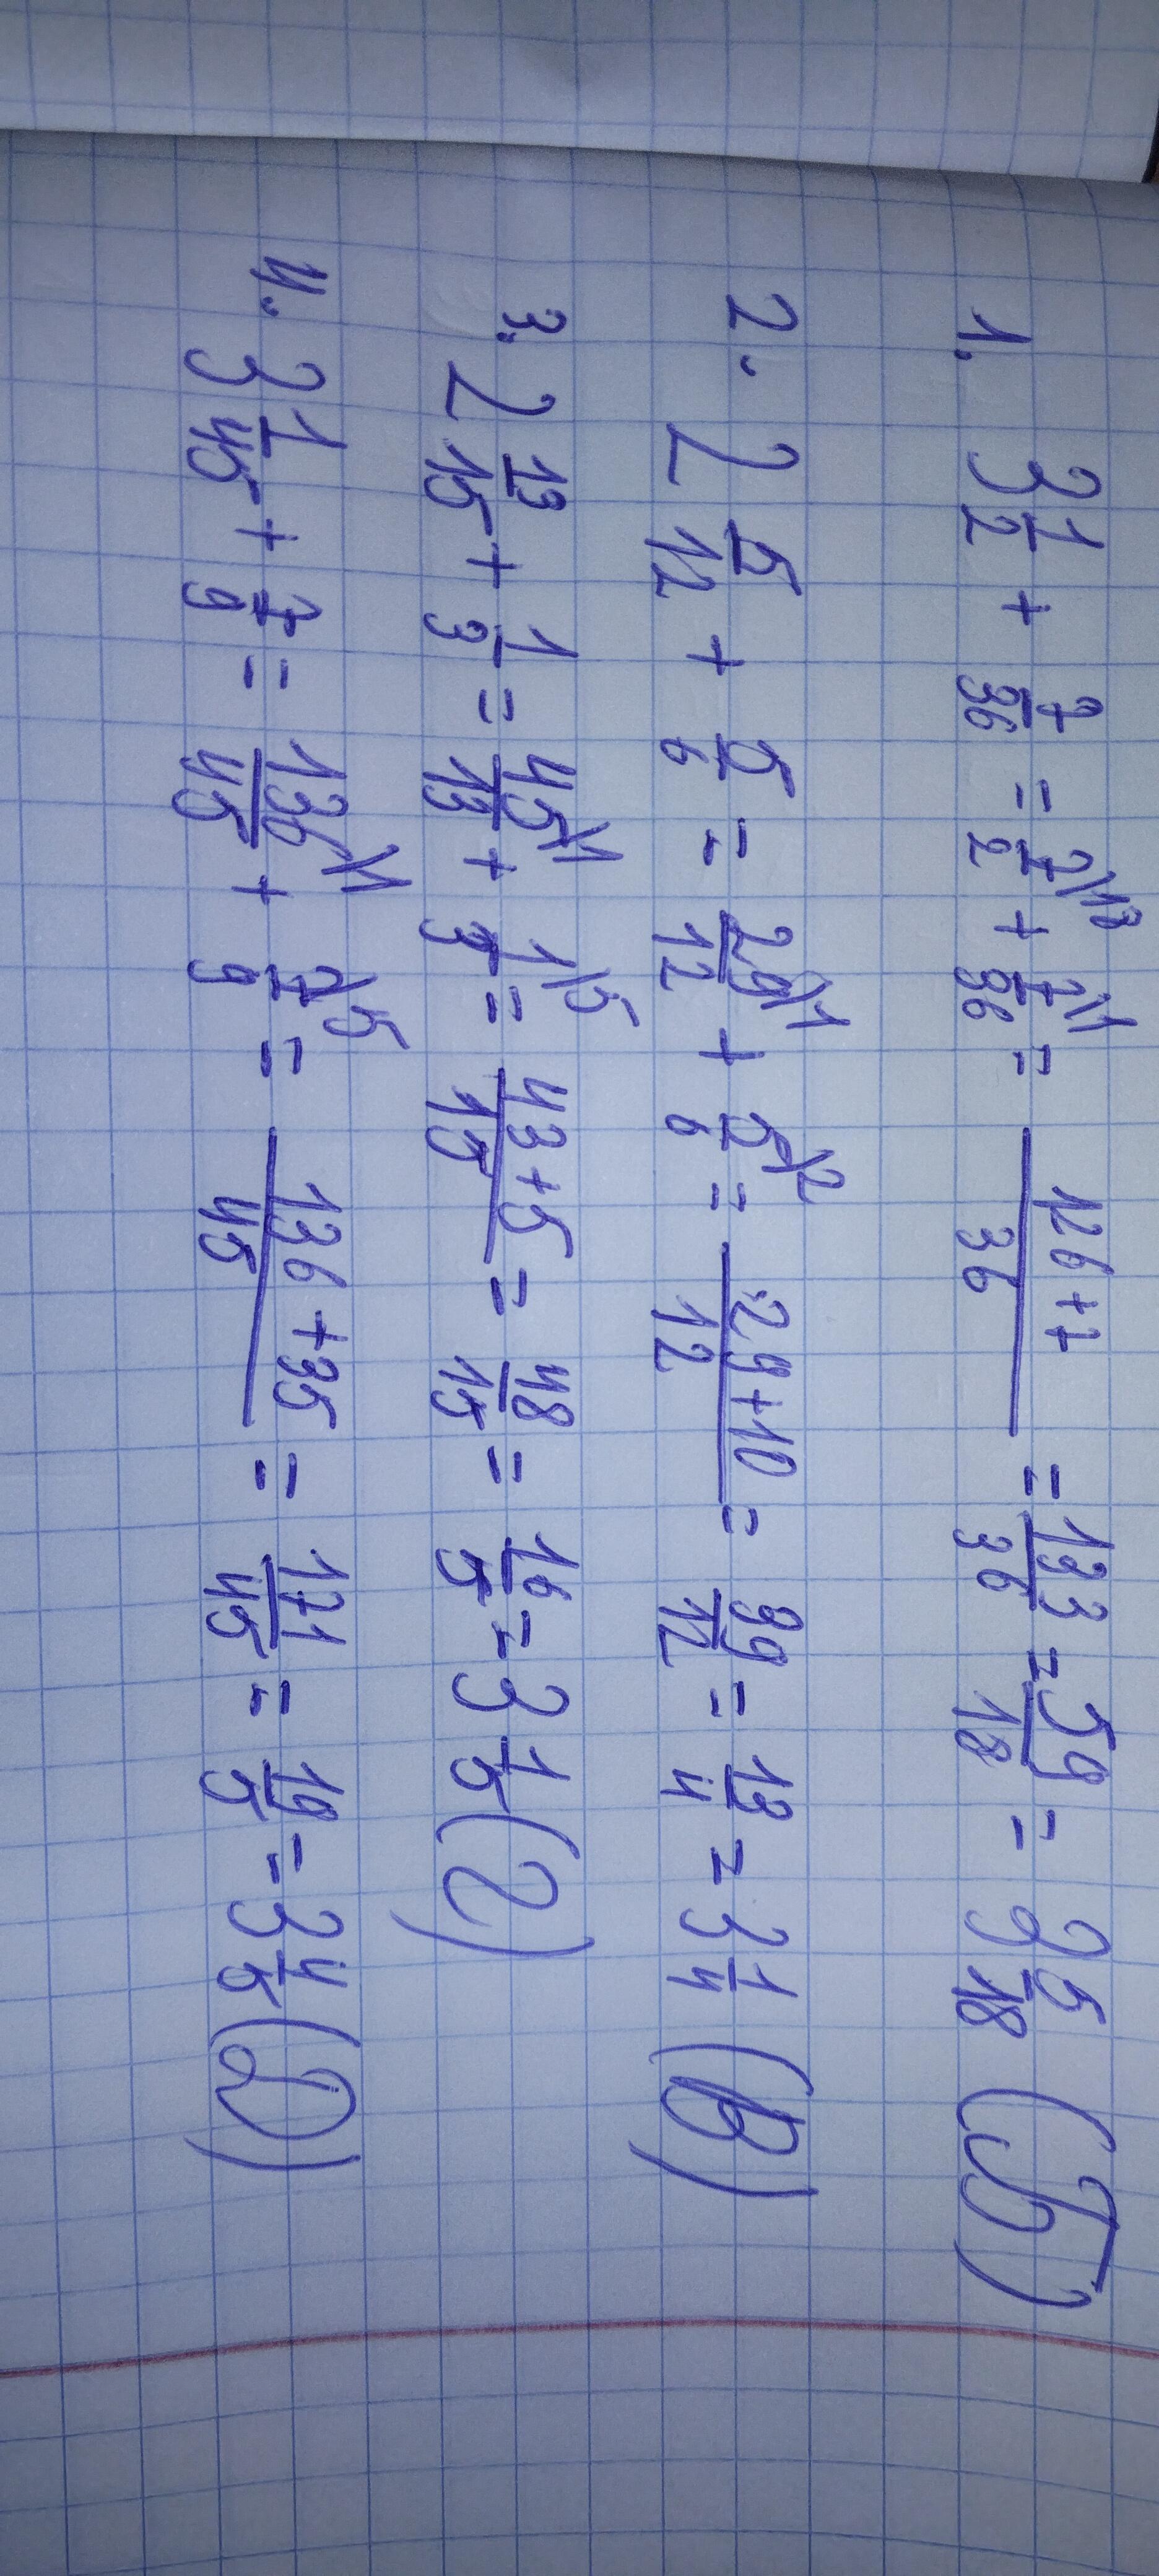 1. 3 1/2 + 7/36 = 7/2\18 + 7/36\1 = (126+7)/36 = 133/36 = 59/18 = 3 5/18 (Б)
2. 2 5/12 + 5/6 = 29/12\1 + 5/6\2 = (29+10)/12 = 39/12 = 13/4 = 3 1/4 (В)
3. 2 13/15 + 1/3 = 45/13\1 + 1/3\5 = (43+5)/15 = 48/15 = 16/5 = 3 1/5 (2)
4. 3 1/45 + 7/9 = 136/45\1 + 7/9\5 = (136+35)/45 = 171/45 = 19/5 = 3 4/5 (2)